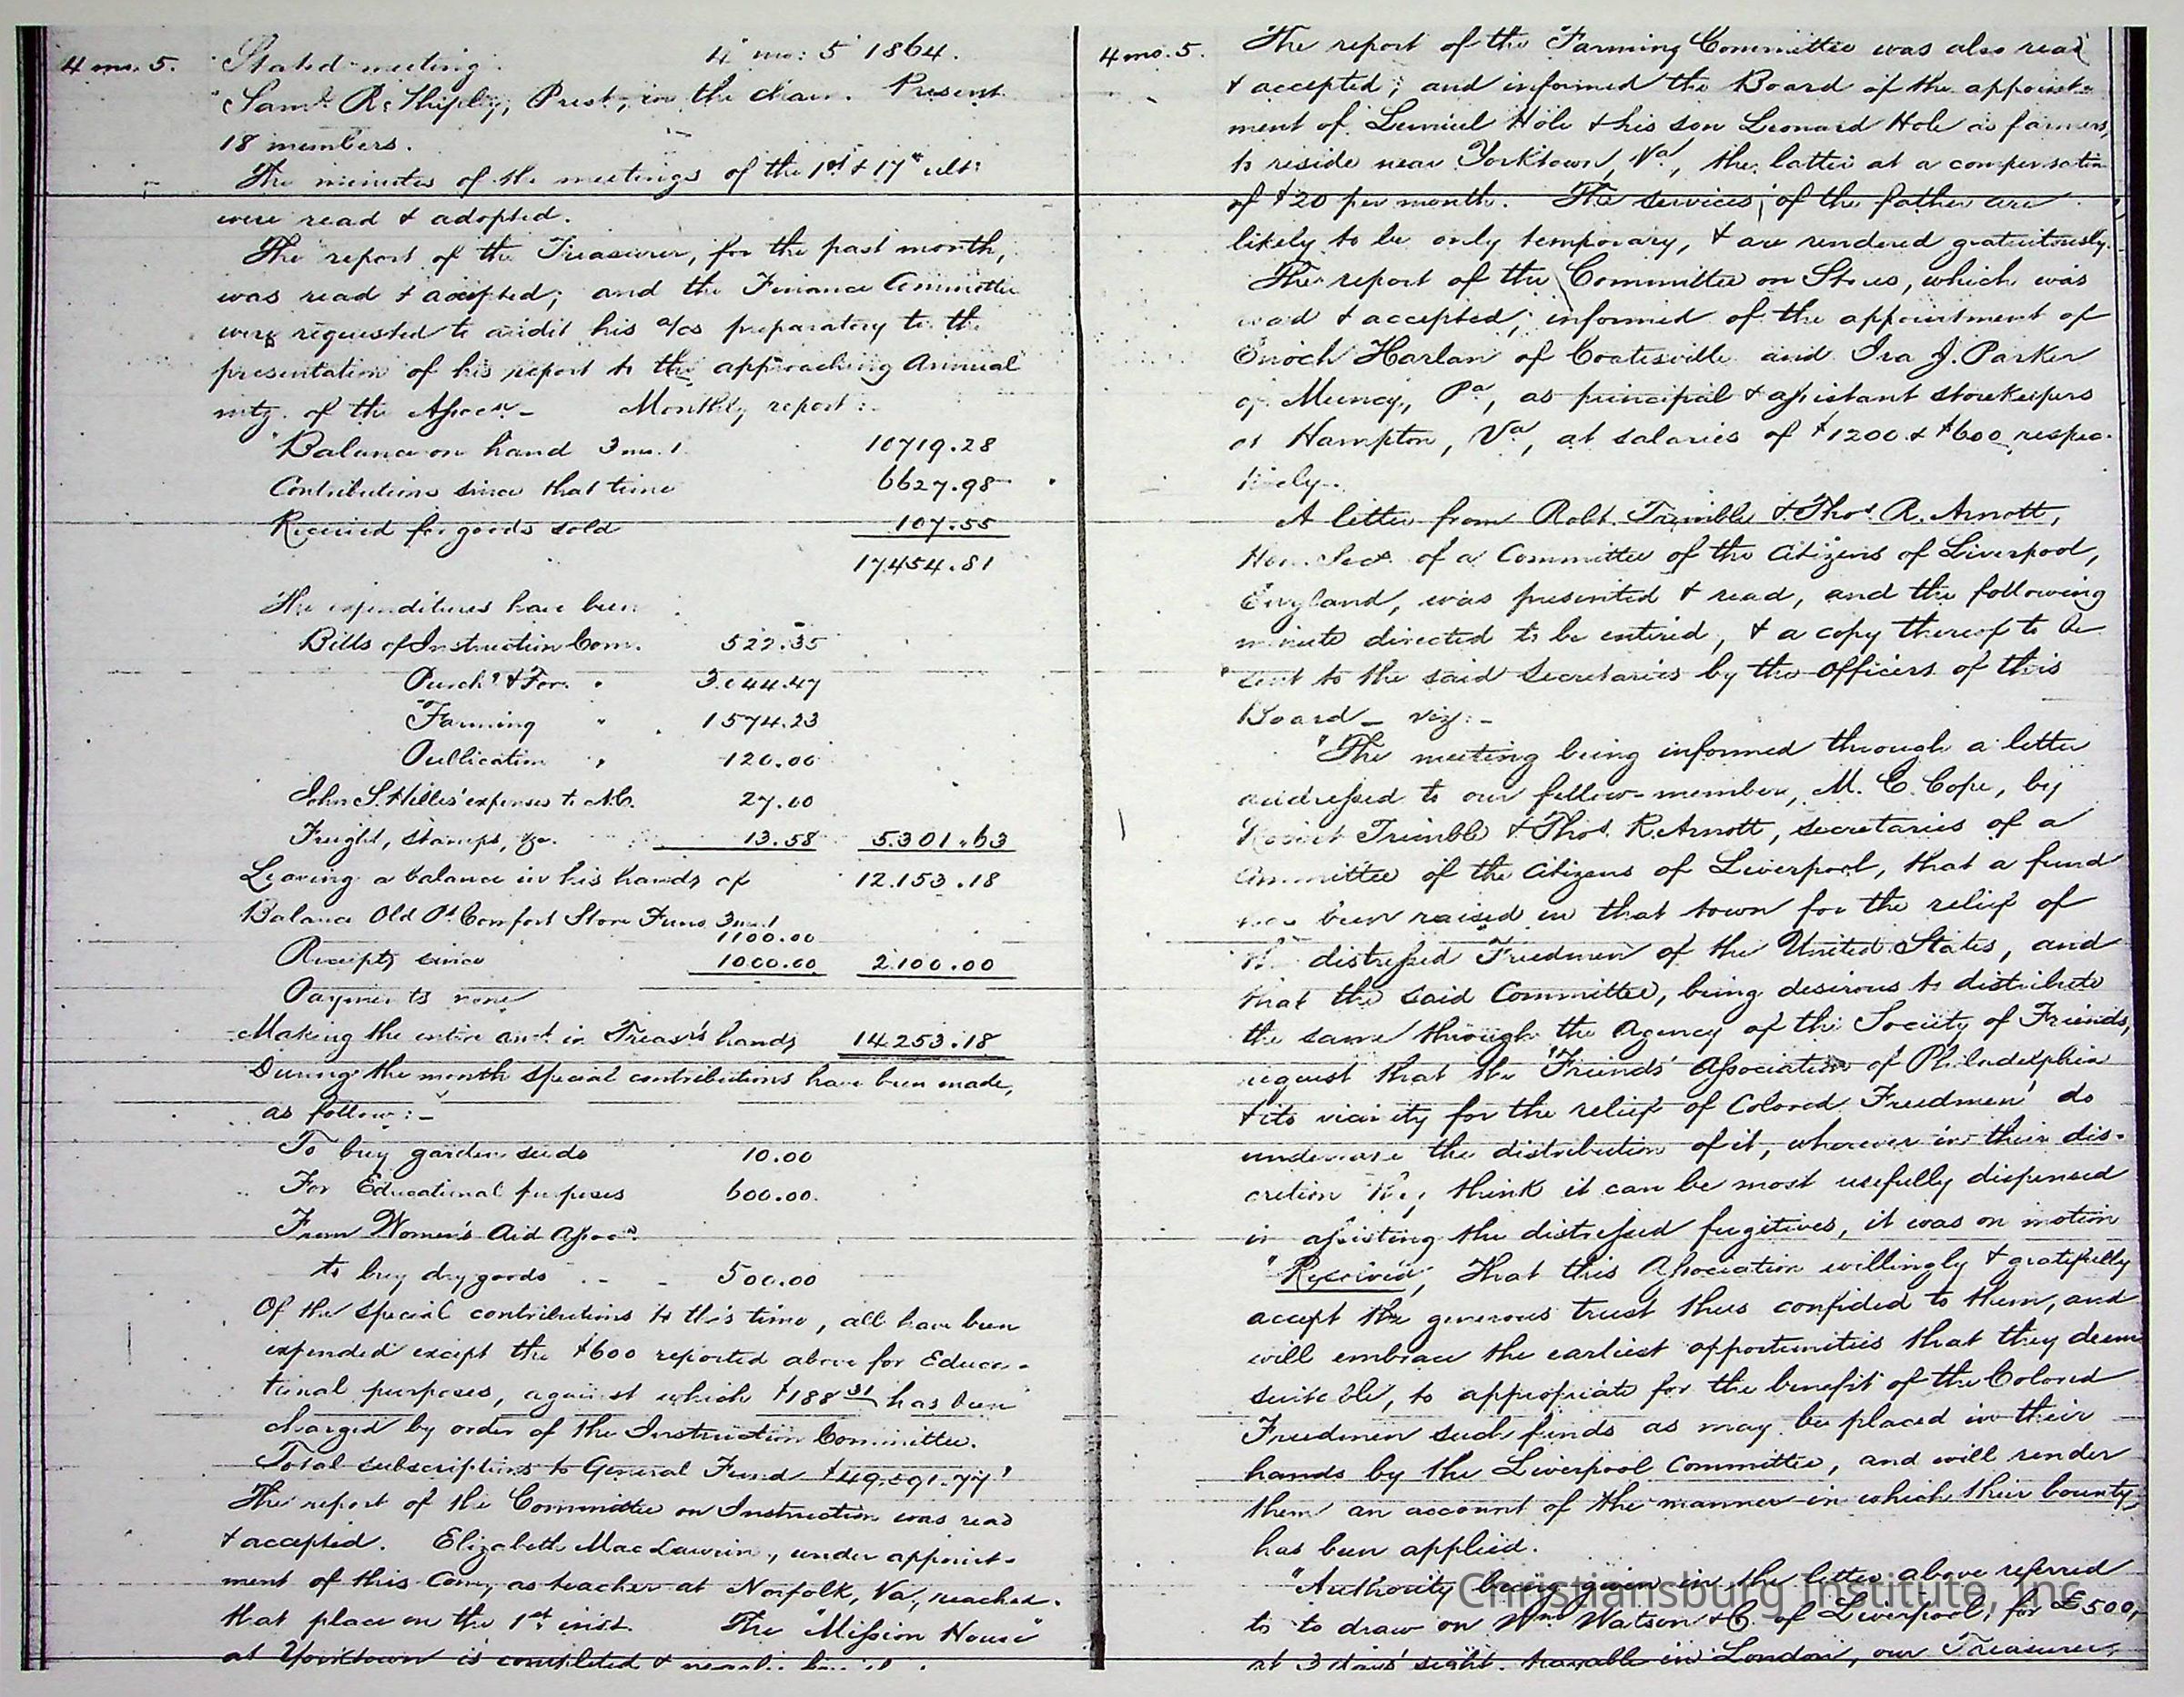 4 mo. 5.
Stated meeting. 4 mo: 5 1864.
Saml. R. Shipley, Prest, in the chair. Present
18 members.
The minutes of the meetings of the 1st & 17th ult:
were read & adopted.
The report of the Treasurer, for the past month,
was read & accepted; and the Finance Committee
were requested to audit his a/cs preparatory to the
presentation of his report to the approaching Annual
mtg. of the Assocn. Monthly report:
Balance on hand 3 mo. 1. 10719.28
Contributions since that time 6627.98
Received for goods sold 107.55
17454.81
The expenditures have been
Bills of Instruction Com. 522.35
Purchg & For. " 3044.47
Farming " 1574.23
Publication " 120.00
John S. Hilles' expenses to N.C. 27.00
Freight, stamps, &c. 13.58 5.301.63
Leaving a balance in his hands of 12.153.18
Balance Old Pt. Comfort Store Fund 3 mo. 1
1100.00
Receipts since 1000.00 2.100.00
Payments none
Making the entire amt. in Treas's hands 14.253.18
During the month special contributions have been made,
as follow:-
To buy garden seeds 10.00
For Educational purposes 600.00
From Women's Aid Assocn.
to buy dry goods - - 500.00
Of the special contributions to this time, all have been
expended except the $600 reported above for Educa-
tional purposes, against which $188 31 has been
charged by order of the Instruction Committee.
Total subscriptions to General Fund
The report of the Committee on Instruction was read
& accepted. Elizabeth MacLaurin, under appoint-
ment of this Com., as teacher at Norfolk, Va, reached
that place on the 1st inst. The "Mission House"
at Yorktown is completed &
4 mo. 5.
The report of the Farming Committee was also read
& accepted; and informed the Board of the appoint-
ment of Lemuel Hole & his son Leonard Hole as farmers,
to reside near Yorktown, Va, the latter at a compensation
of $20 per month. The services of the father are
likely to be only temporary, & are rendered gratuitously.
The report of the Committee on Stores, which was
read & accepted, informed of the appointment of
Enoch Harlan of Coatesville and Ira J. Parker
of Muncy, Pa, as principal & assistant storekeepers
at Hampton, Va, at salaries of $1200 & $600 respec-
tively.
A letter from Robt. Trimble & Thos. R. Arnott,
Hon. Secs. of a Committee of the Citizens of Liverpool,
England, was presented & read, and the following
minute directed to be entered, & a copy thereof to be
sent to the said Secretaries by the Officers of this
Board - viz:-
"The meeting being informed through a letter
addressed to our fellow-member, M. C. Cope, by
Robert Trimble & Thos. R. Arnott, secretaries of a
Committee of the Citizens of Liverpool, that a fund
has been raised in that town for the relief of
the distressed Freedmen of the United States, and
that the said Committee, being desirous to distribute
the same through the Agency of the Society of Friends,
request that the 'Friends' Association of Philadelphia
& its vicinity for the relief of Colored Freedmen' do
undertake the distribution of it, wherever in their dis-
cretion they think it can be most usefully dispensed
in assisting the distressed fugitives, it was on motion
"Resolved, That this Association willingly & gratefully
accept the generous trust thus confided to them, and
will embrace the earliest opportunities that they deem
suitable, to appropriate for the benefit of the Colored
Freedmen such funds as may be placed in their
hands by the Liverpool Committee, and will render
them an account of the manner in which their bounty
has been applied.
"Authority being given in the letter above referred
to to draw on Wm Watson & Co. of Liverpool, for £500,
at 3 days' sight, payable in London, our Treasurer,
Christiansburg Institute, Inc